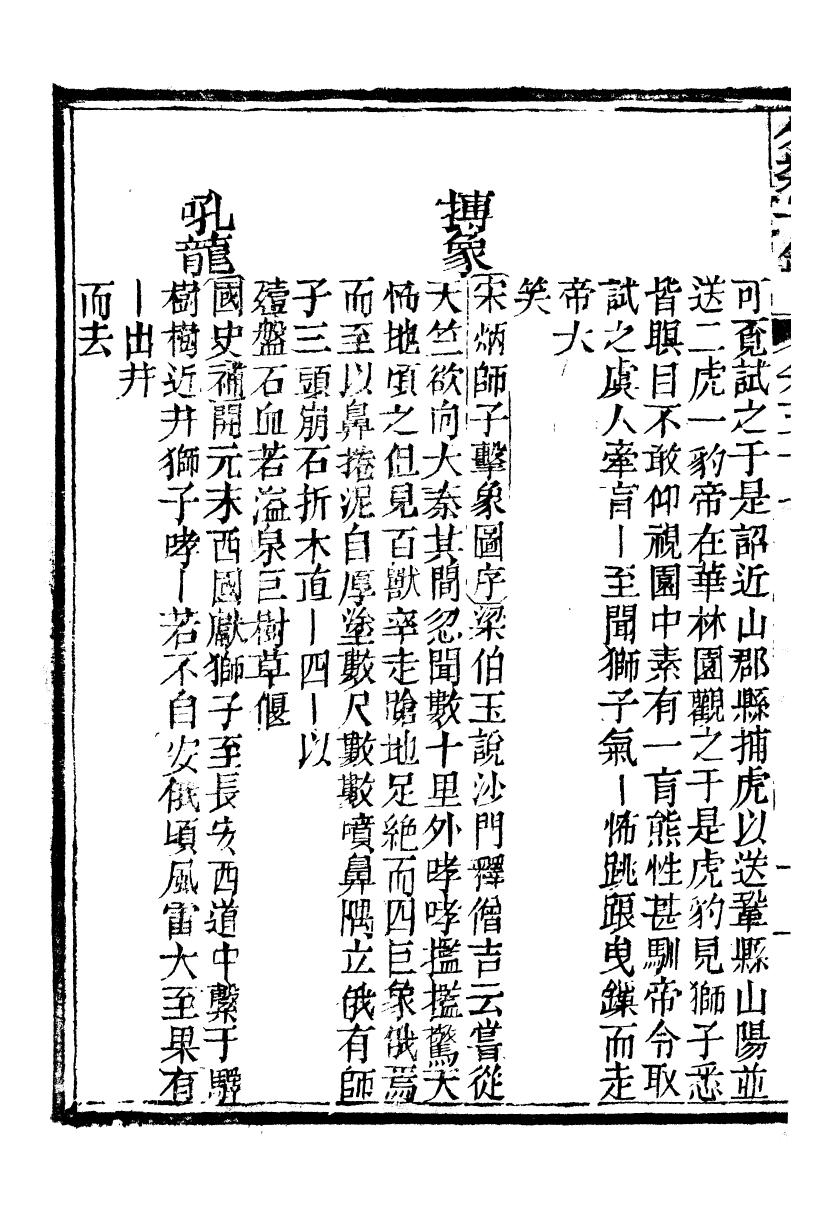 可覓試之于是詔近山郡縣捕虎以送鞏縣山陽並
送二虎一豹帝在華林園觀之于是虎豹見獅子悉
皆瞑目不敢仰視園中素有一盲熊性甚馴帝令取
試之虞人牽盲｜至聞獅子氣｜怖跳踉曳鏁而走
帝大
笑
搏象
宋炳師子擊象圖序梁伯玉說沙門釋僧吉云嘗從
天竺欲向大秦其間忽聞數十里外哮哮㩜㩜驚天
怖地頃之但見百獸率走蹌地足絶而四巨象俄焉
而至以鼻捲泥自厚塗數尺數數噴鼻隅立俄有師
子三頭崩石折木直｜四｜以
殪盤石血若溢泉巨樹草偃
吼龍
國史補開元末西國獻獅子至長安西道中繫于驛
樹樹近井獅子哮｜若不自安俄頃風雷大至果有
｜出井
而去